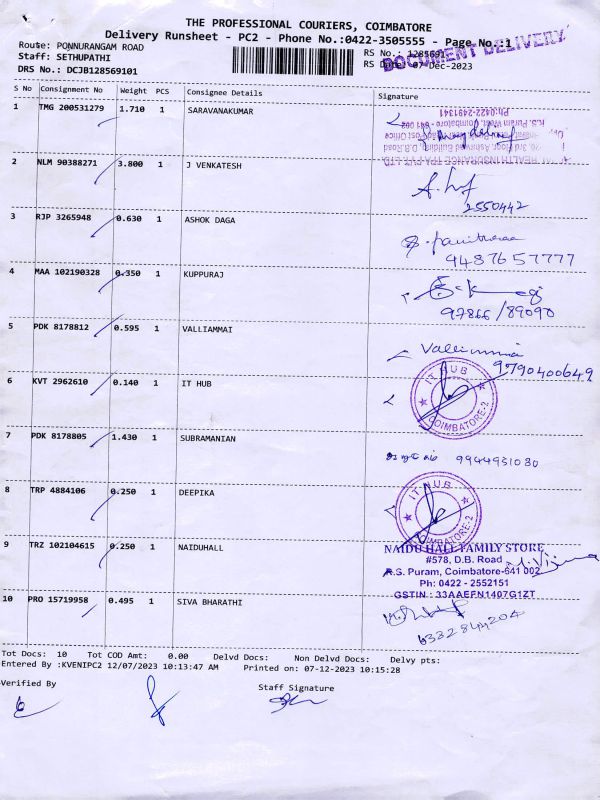 THE PROFESSIONAL COURIERS, COIMBATORE
Delivery Runsheet - PC2 - Phone No.:0422-3505555 - Page No.:1
DOCUMENT DELIVERY
Route: PONNURANGAM ROAD
RS No.: 1285691
Staff: SETHUPATHI
RS Date: 07-Dec-2023
DRS No.: DCJB128569101
S No Consignment No Weight PCS Consignee Details Signature
1 TMG 200531279 1.710 1 SARAVANAKUMAR
Ph:0422-2491341
2 NLM 90388271 3.800 1 J VENKATESH
2550442
3 RJP 3265948 0.630 1 ASHOK DAGA
9487657777
4 MAA 102190328 0.350 1 KUPPURAJ
97866/89090
5 PDK 8178812 0.595 1 VALLIAMMAI
9790400649
6 KVT 2962610 0.140 1 IT HUB
IT HUB
COIMBATORE-2
7 PDK 8178805 1.430 1 SUBRAMANIAN
9944931030
8 TRP 4884106 0.250 1 DEEPIKA
IT HUB
COIMBATORE-2
9 TRZ 102104615 0.250 1 NAIDUHALL
NAIDU HALL FAMILY STORE
#578, D.B. Road
R.S. Puram, Coimbatore-641 002
Ph: 0422 - 2552151
GSTIN : 33AAEFN1407G1ZT
10 PRO 15719958 0.495 1 SIVA BHARATHI
Tot Docs: 10 Tot COD Amt: 0.00 Delvd Docs: Non Delvd Docs: Delvy pts:
Entered By :KVENIPC2 12/07/2023 10:13:47 AM Printed on: 07-12-2023 10:15:28
Verified By
Staff Signature